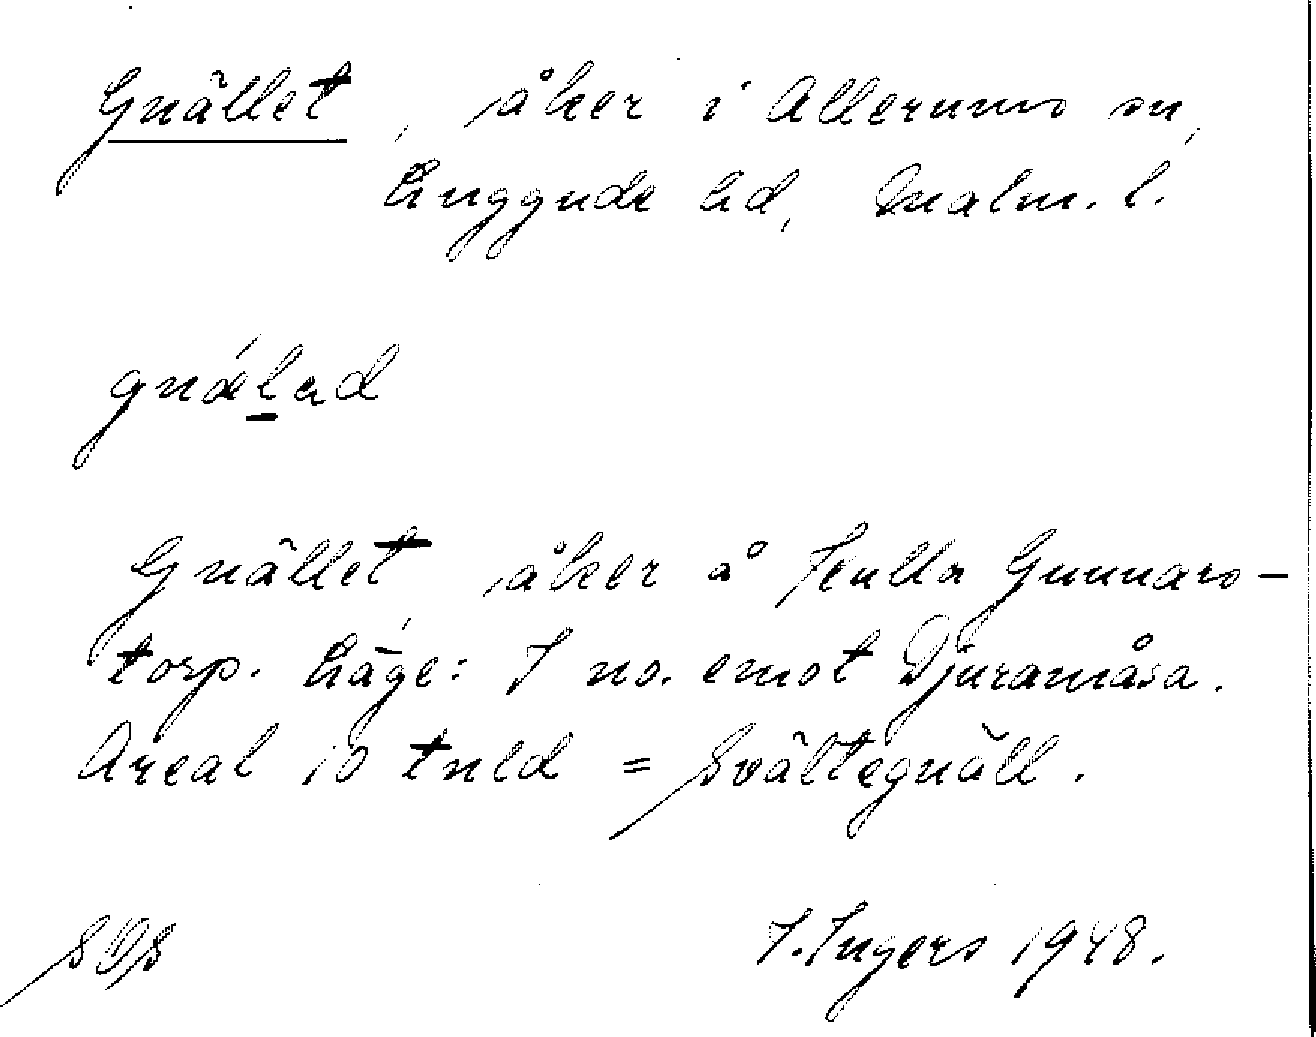 Gnället, åker i Allerums sn,
Luggude hd, Malm. l.
gnǽlad
Gnället, åker å Kulla Gunnars-
torp. Läge: I no. emot Djuramåsa.
Areal 10 tnld = Svältegnäll.
SOS I. Ingers 1948.